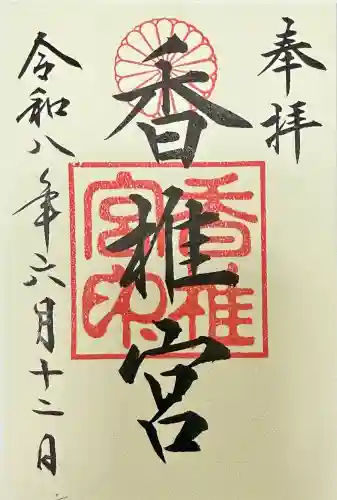 奉拝
香椎宮
香椎宮印
令和八年六月十二日